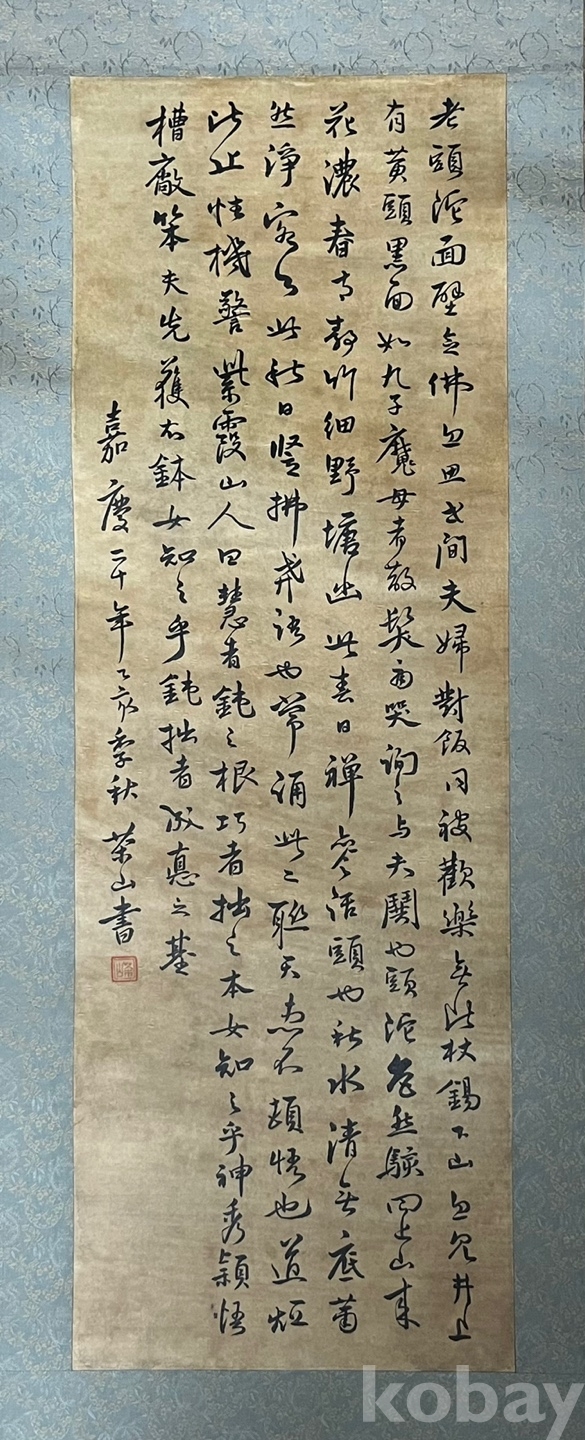 老頭陀面壁念佛忽思世間夫婦對飯同被歡樂無比杖錫下山忽見井上
有黃頭黑面如九子魔母者散髮而哭詢之与夫鬪也頭陀危然駭回上山來
花濃春寺靜竹細野塘幽此春日禪參話頭也秋水清無底蕭
然淨客心此秋日竪拂我語也常誦此二聯天下不頓悟也道
此山性機警紫霞山人曰慧者鈍之根巧者拙之本女知之乎神秀穎悟
槽廠笨夫先獲衣鉢女知之乎鈍拙者成悳之基
嘉慶二十年乙亥季秋 茶山書
kobay